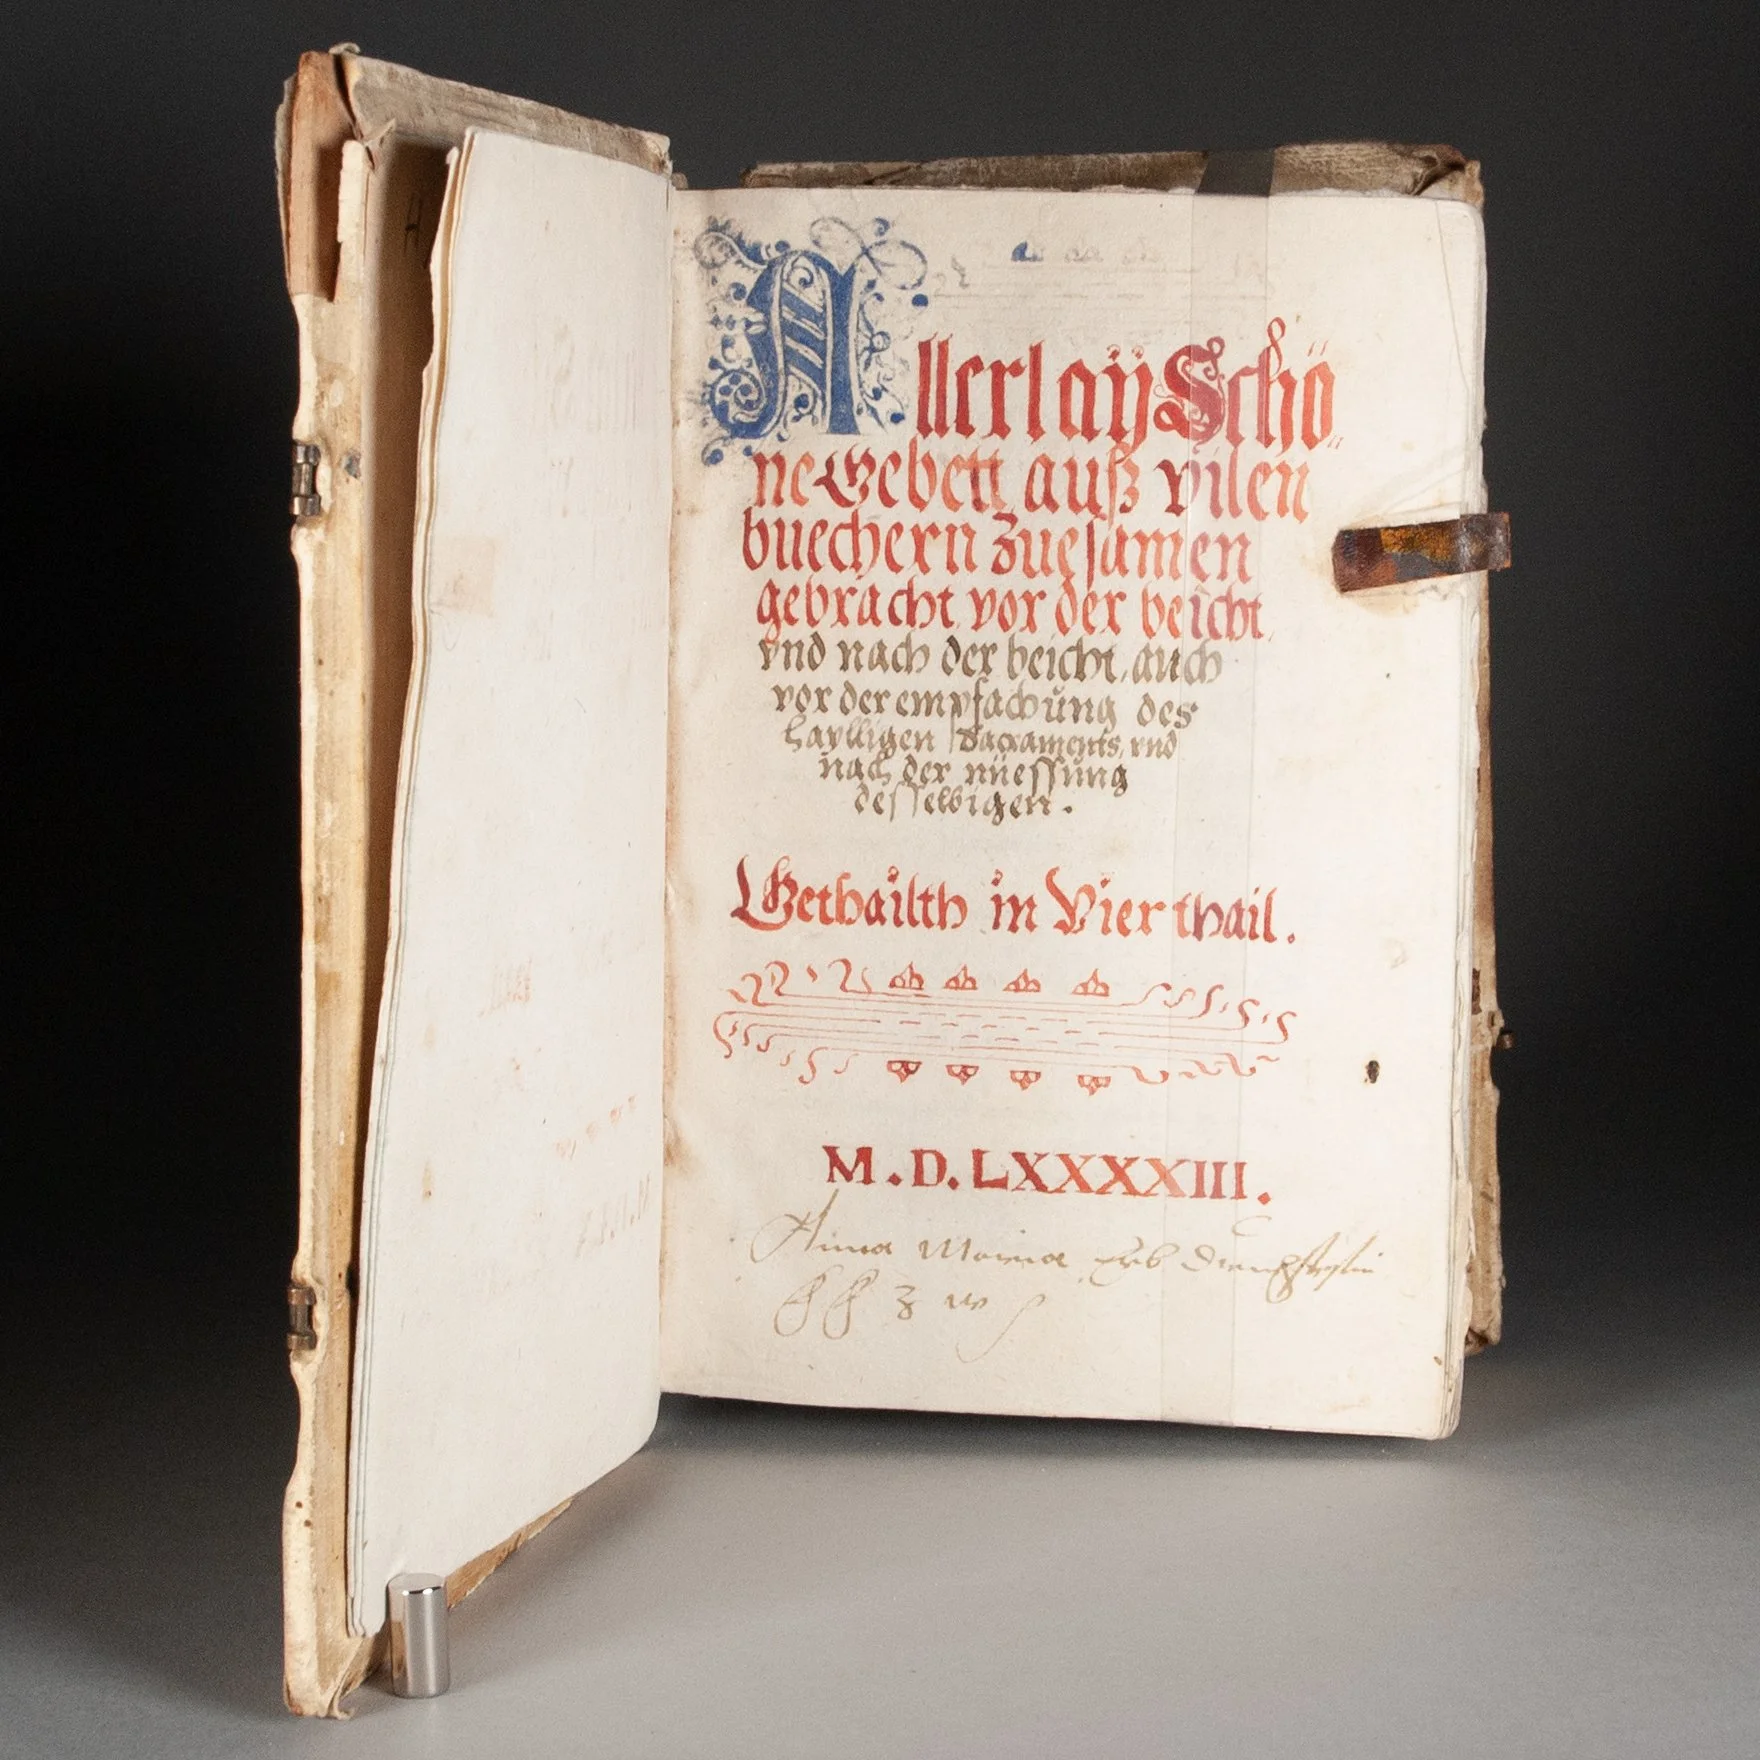 Allerlaÿ Schö=
ne Gebett auß vilen
buechern zuesamen
gebracht vor der beicht,
vnd nach der beicht, auch
vor der empfachŭng des
haylligen Sacraments, vnd
nach der nüessŭng
desselbigen.
Gethailth in Vier thail.
M.D.LXXXXIII.
Anna Maria